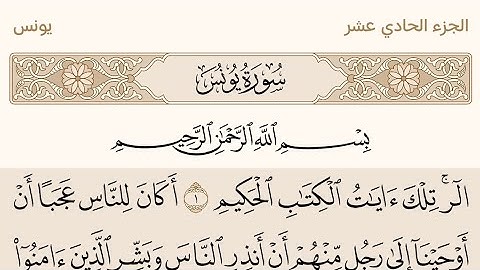 الجزء الحادي عشر
يونس
سُورَةُ يُونُسَ
بِسْمِ اللَّهِ الرَّحْمَٰنِ الرَّحِيمِ
الٓرۚ تِلْكَ ءَايَٰتُ الْكِتَٰبِ الْحَكِيمِ ١ أَكَانَ لِلنَّاسِ عَجَبًا أَنْ
أَوْحَيْنَآ إِلَىٰ رَجُلٍ مِّنْهُمْ أَنْ أَنذِرِ النَّاسَ وَبَشِّرِ الَّذِينَ ءَامَنُوٓا۟